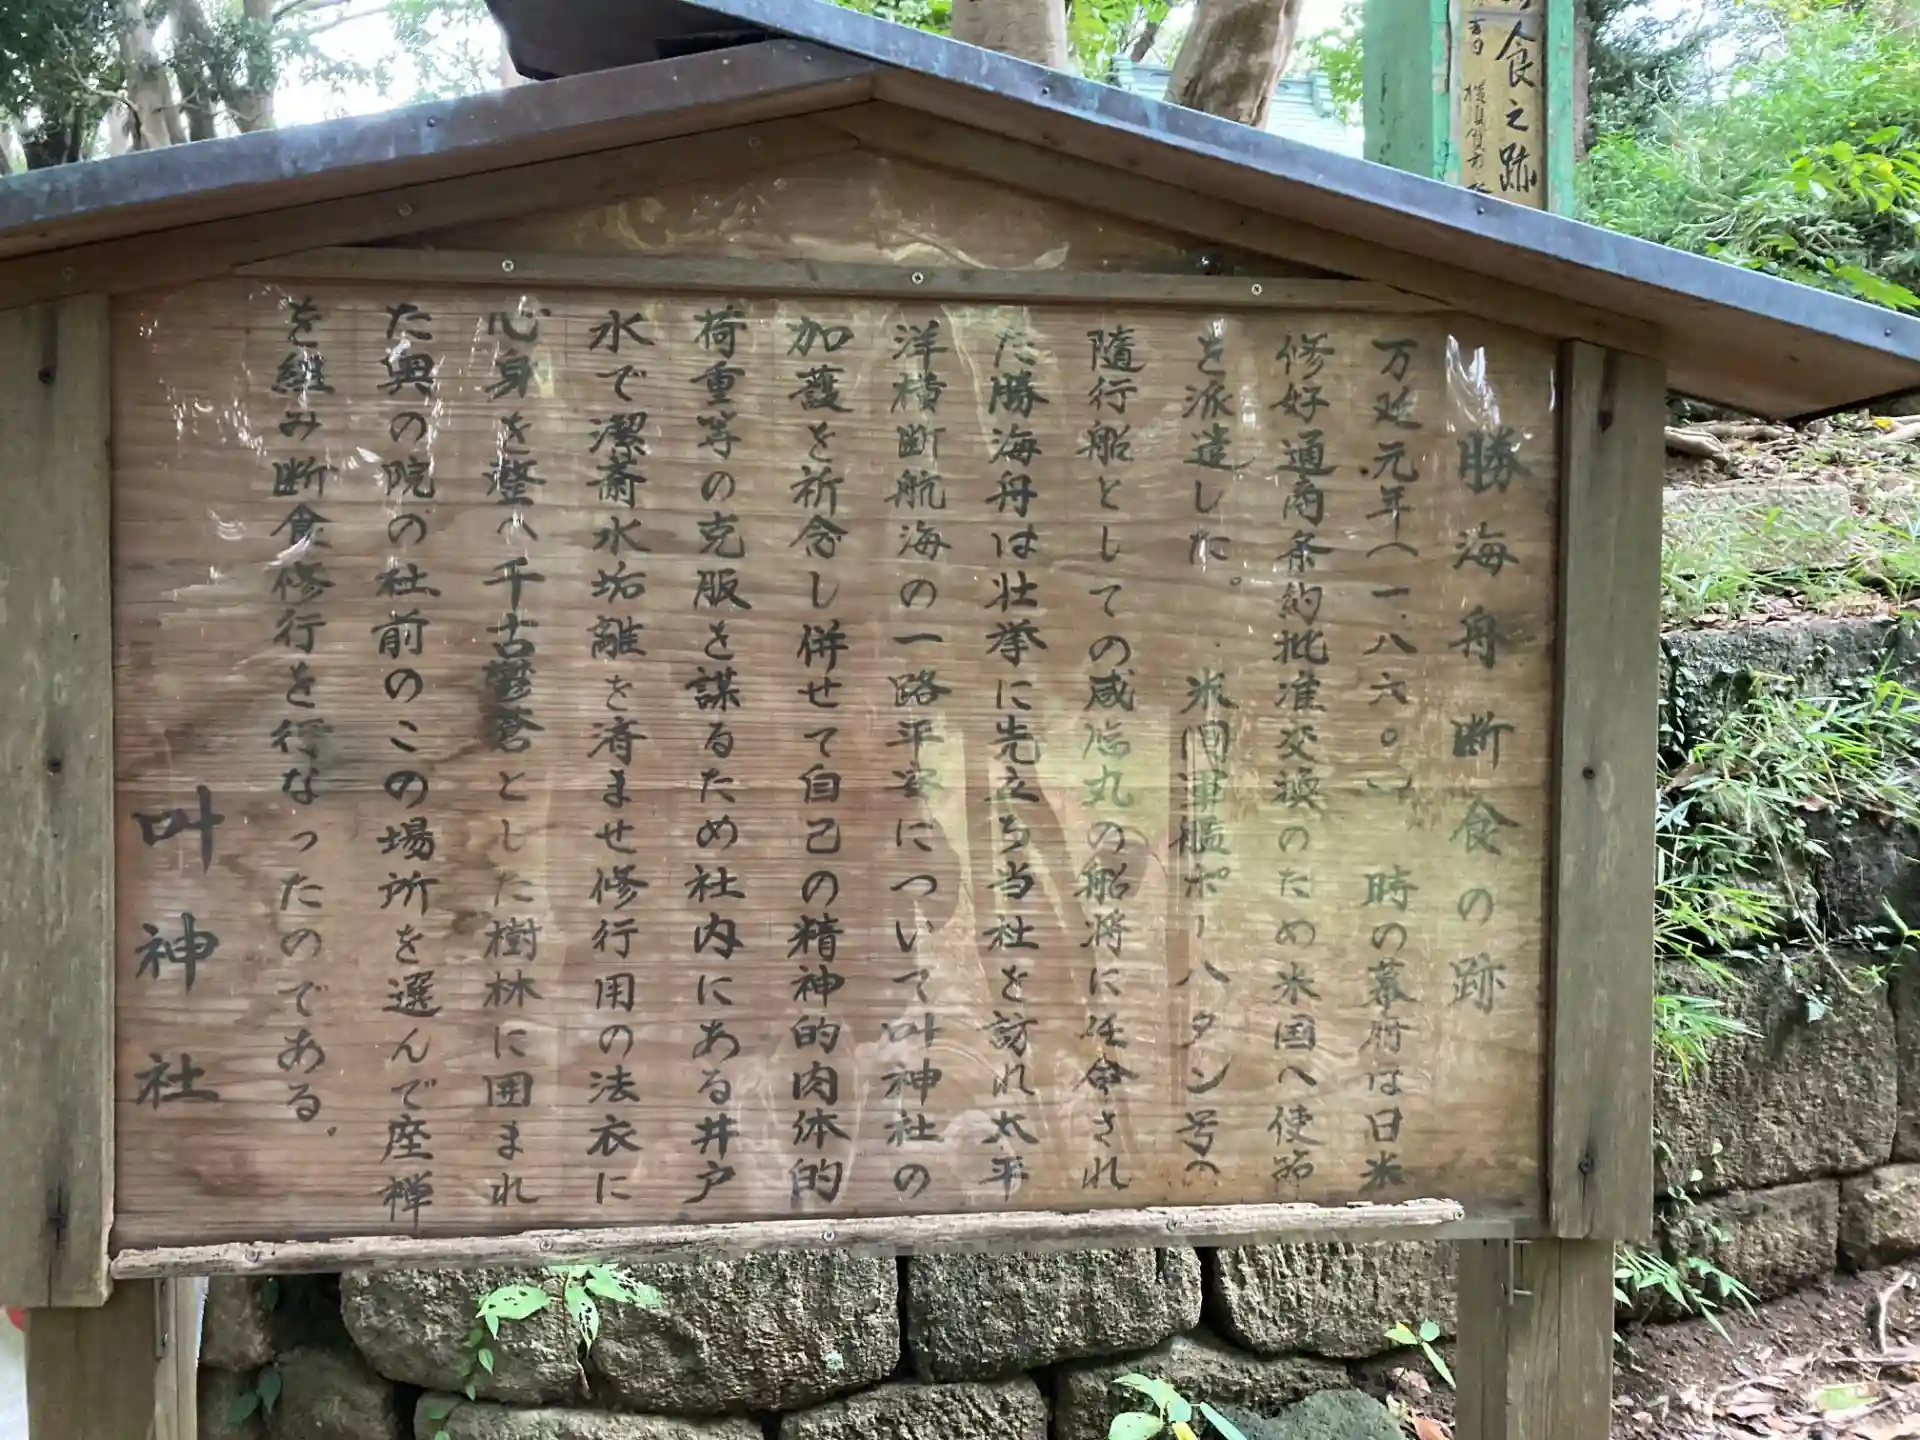 勝海舟断食の跡
万延元年(一八六〇)時の幕府は日米
修好通商条約批准交換のため米国へ使節
を派遣した。 米国軍艦ポーハタン号の
随行船としての咸臨丸の船将に任命され
た勝海舟は壮挙に先立ち当社を訪れ太平
洋横断航海の一路平安について叫神社の
加護を祈念し併せて自己の精神的肉体的
荷重等の克服を謀るため社内にある井戸
水で潔斎水垢離を済ませ修行用の法衣に
心身を整へ千古鬱蒼とした樹林に囲まれ
た奥の院の社前のこの場所を選んで座禅
を組み断食修行を行なったのである。
叫神社
食之跡